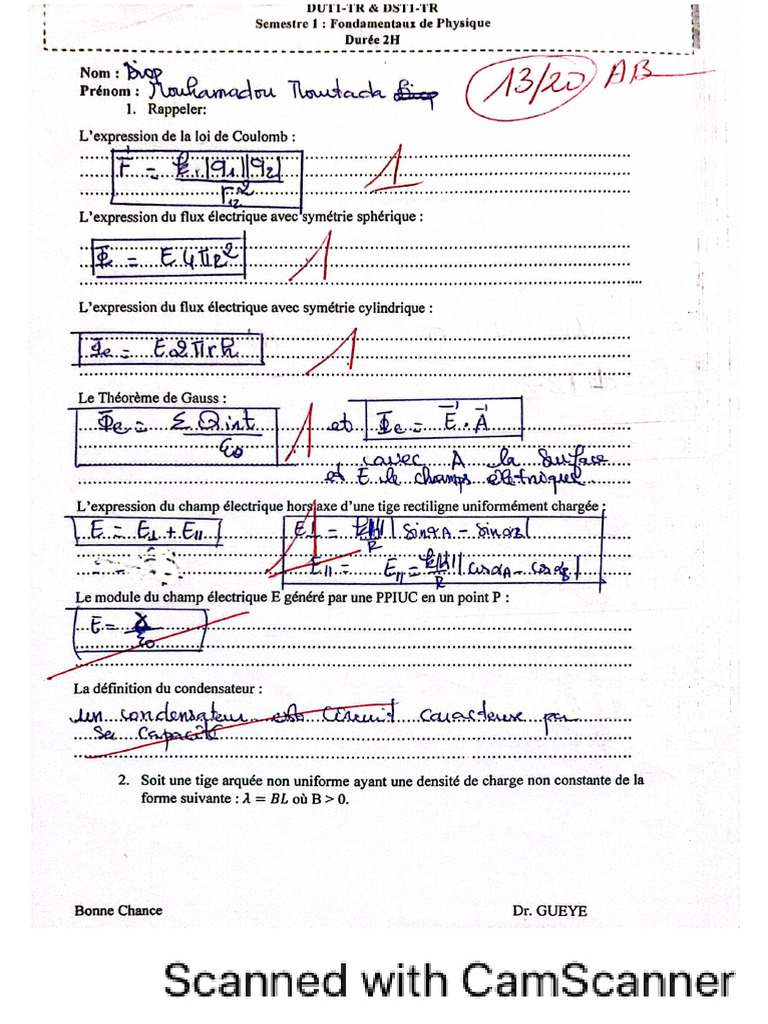 DUT1-TR & DST1-TR
Semestre 1 : Fondamentaux de Physique
Durée 2H
Nom : Diop
Prénom : Mouhamadou Moustach Diop
13/20 AB
1. Rappeler:
L'expression de la loi de Coulomb :
F = k.|q1||q2| / r12²
1
L'expression du flux électrique avec symétrie sphérique :
Φe = E.4πR²
1
L'expression du flux électrique avec symétrie cylindrique :
Φe = E.2πrh
1
Le Théorème de Gauss :
Φe = ΣQint / ε0 et Φe = E⃗ . A⃗
1
avec A la surface
et E le champs éléctrique
L'expression du champ électrique hors axe d'une tige rectiligne uniformément chargée :
E = E⊥ + E// E⊥ = k|λ|/R | sinαA - sinαB |
1
E// = E// = k|λ|/R | cosαA - cosαB |
Le module du champ électrique E généré par une PPIUC en un point P :
E = / ε0
La définition du condensateur :
un condensateur est circuit par
sa capacité
2. Soit une tige arquée non uniforme ayant une densité de charge non constante de la
forme suivante : λ = BL où B > 0.
Bonne Chance Dr. GUEYE
Scanned with CamScanner